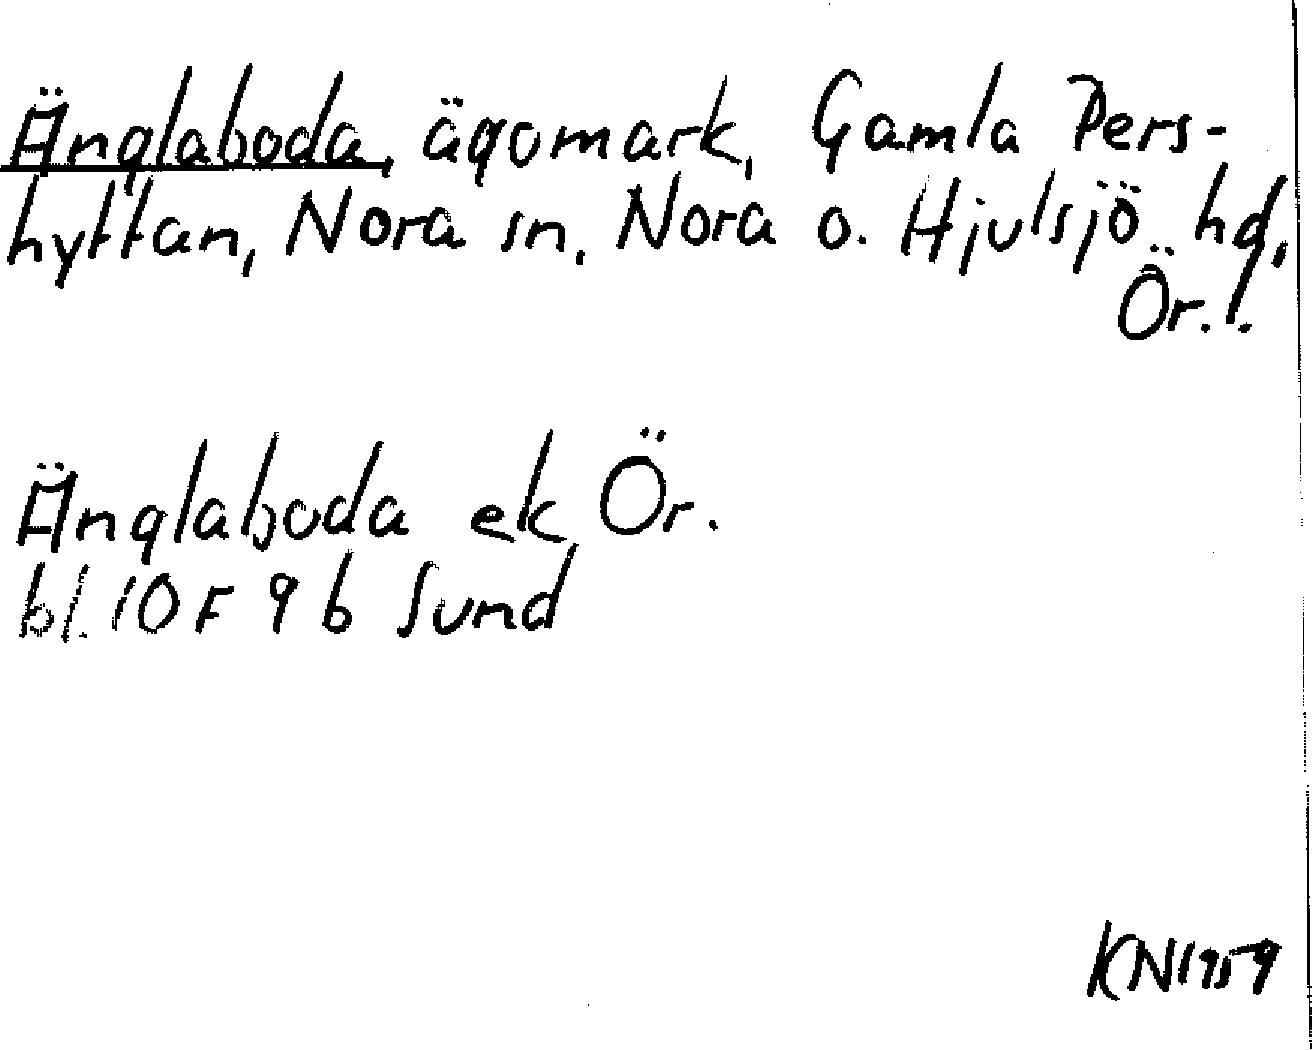 Änglaboda, ägomark, Gamla Pers-
hyttan, Nora sn, Nora o. Hjulsjö hd,
Ör. l.
Änglaboda ek Ör.
bl. 10 F 9 b Sund
KN 1959